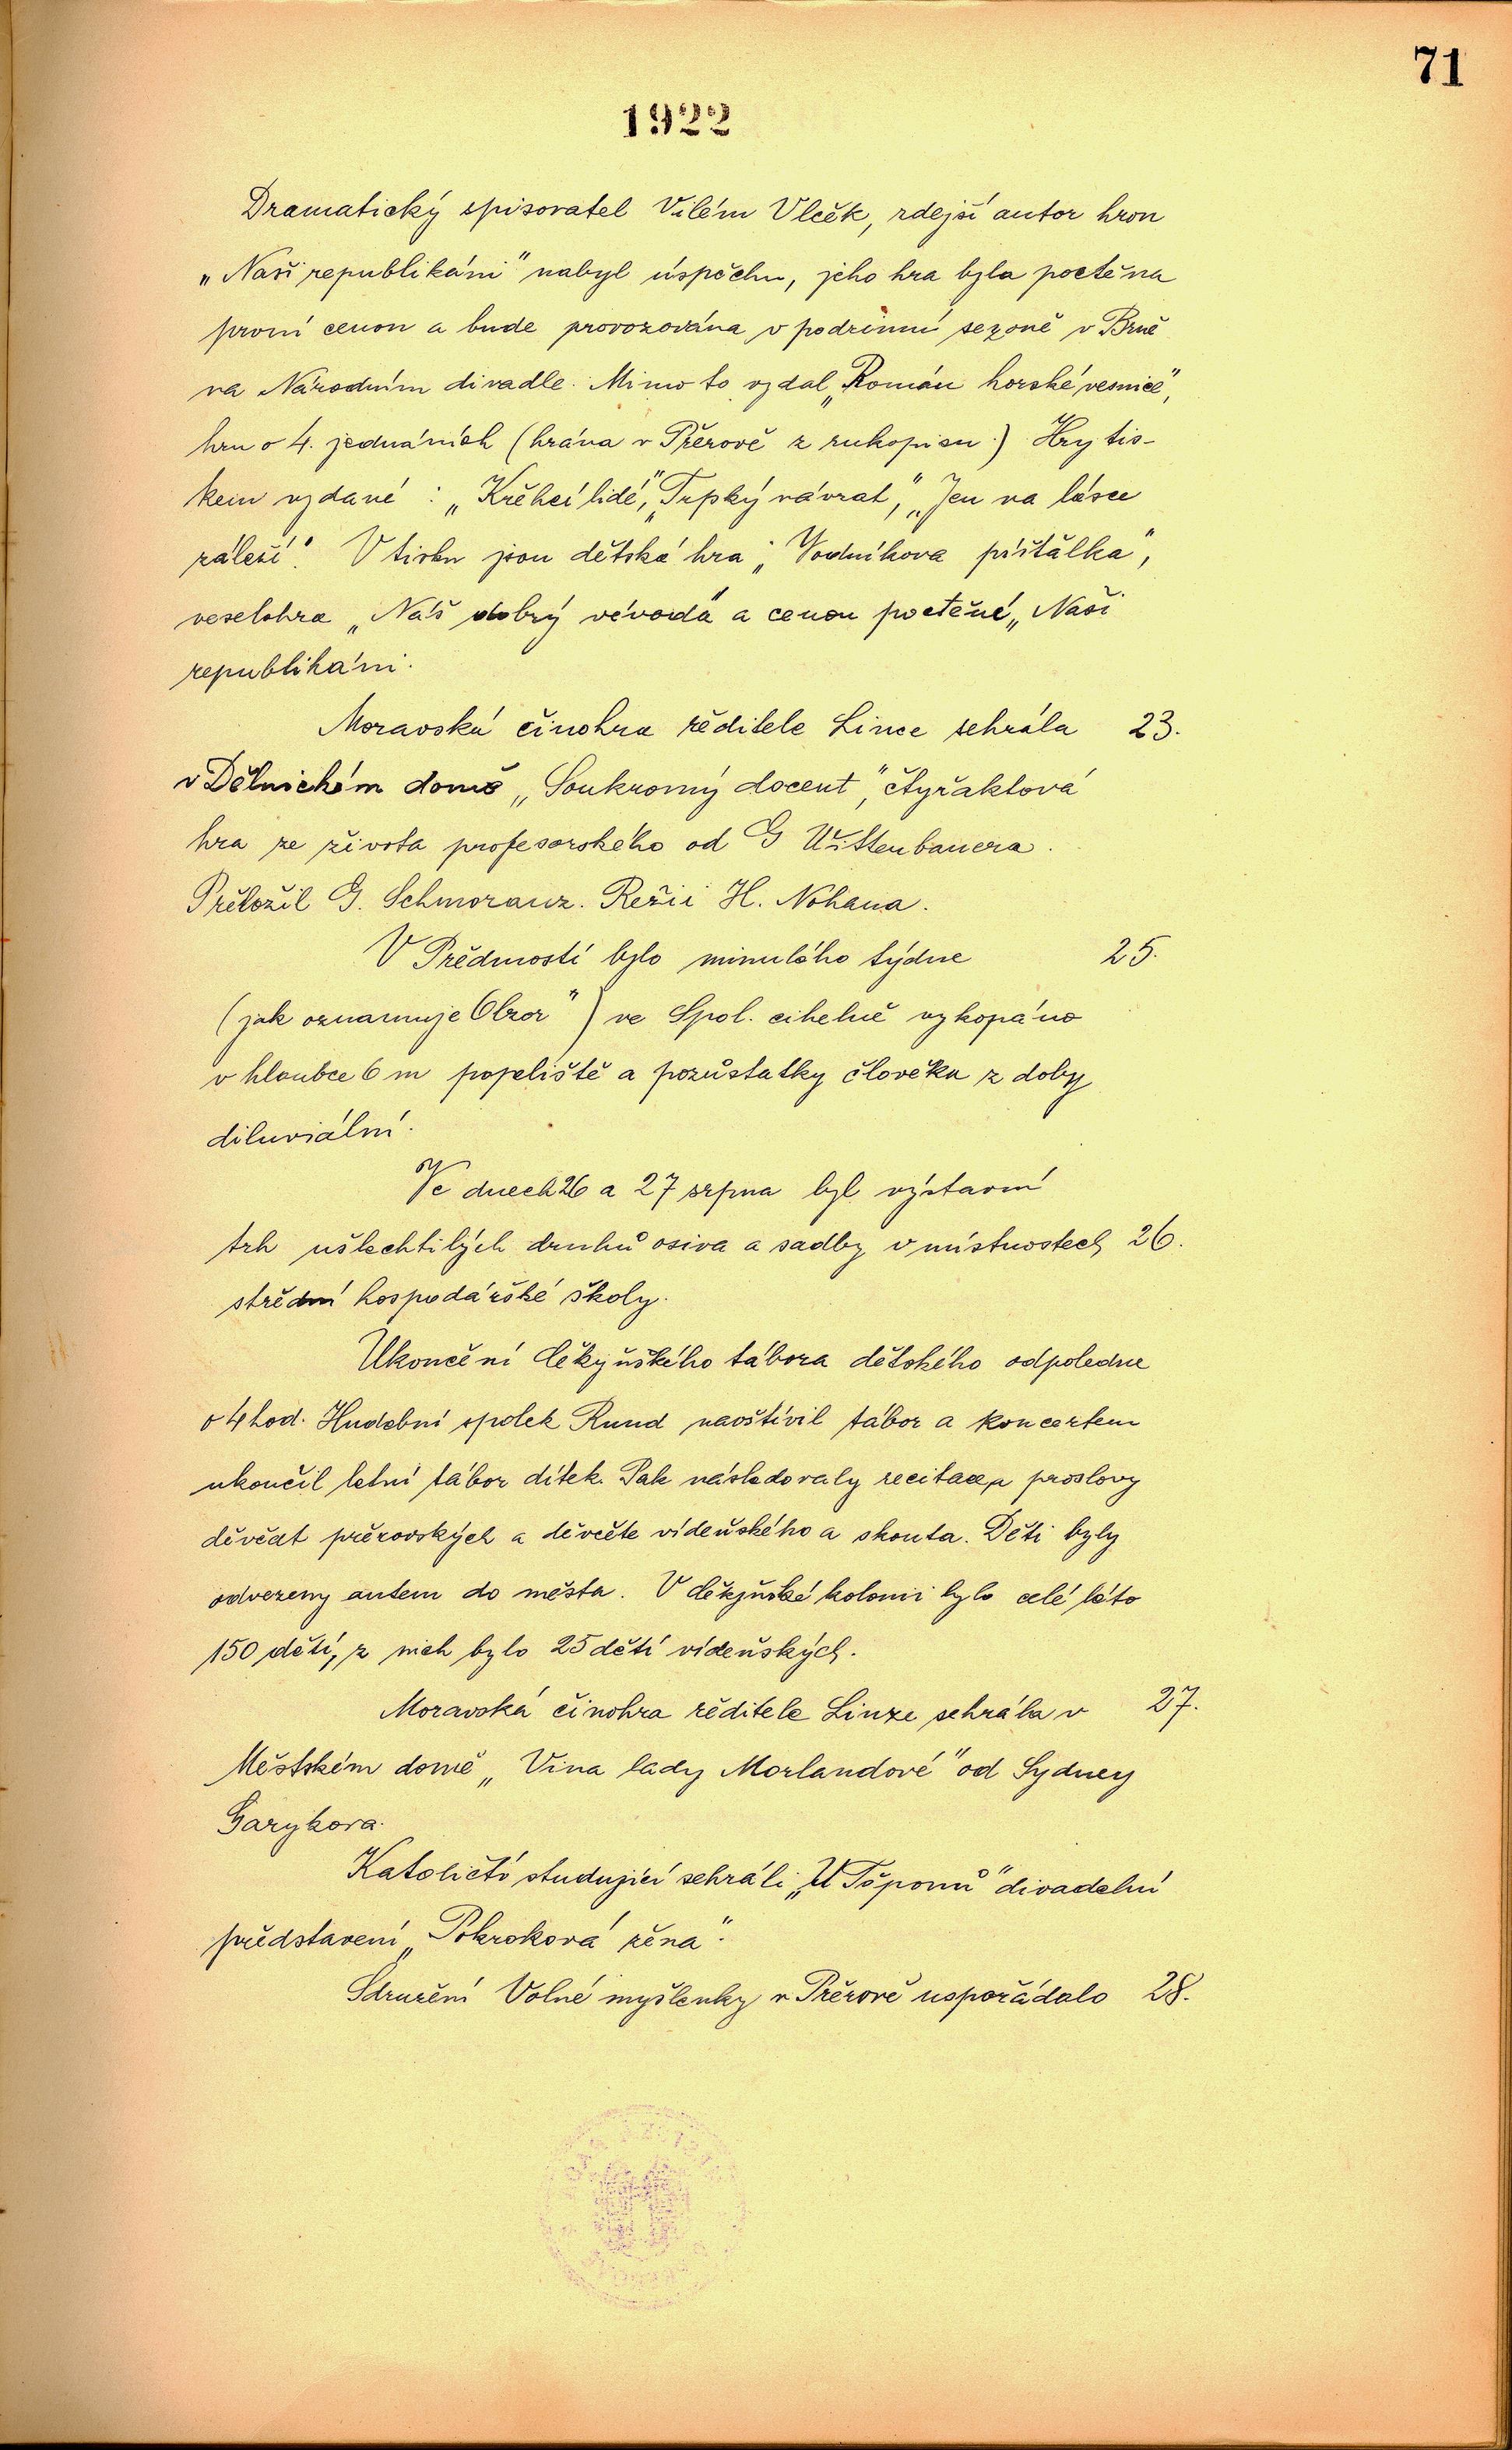 71
1922
Dramatický spisovatel Vilém Vlček, zdejší autor hrou
„Naši republikáni" nabyl úspěchu, jeho hra byla poctěna
první cenou a bude provozována v podzimní sezoně v Brně
na Národním divadle. Mimo to vydal „Román horské vesnice",
hru o 4. jednáních (hrána v Přerově z rukopisu.) Hry tis-
kem vydané : „Křehcí lidé", „Trpký návrat", „Jen na lásce
záleží". V tisku jsou dětská hra „Vodníkova píšťalka",
veselohra „Náš dobrý vévoda" a cenou poctěné „Naši
republikáni.
Moravská činohra ředitele Lince sehrála 23.
v Dělnickém domě „Soukromý docent", čtyřaktová
hra ze života profesorského od G Wittenbauera.
Přeložil G. Schmoranz. Režií H. Nohana.
V Předmostí bylo minulého týdne 25.
(jak oznamuje Obzor") ve Spol. cihelně vykopáno
v hloubce 6 m popeliště a pozůstatky člověka z doby
diluviální.
Ve dnech 26 a 27 srpna byl výstavní
trh ušlechtilých druhů osiva a sadby v místnostech 26.
střední hospodářské školy.
Ukončení děkyňského tábora dětského odpoledne
o 4 hod. Hudební spolek Rund navštívil tábor a koncertem
ukončil letní tábor dítek. Pak následovaly recitace a proslovy
děvčat přerovských a děvčete vídeňského a skouta. Děti byly
odvezeny autem do města. V děkyňské kolonii bylo celé léto
150 dětí, z nich bylo 25 dětí vídeňských.
Moravská činohra ředitele Linze sehrála v 27.
Městském domě „Vina lady Morlandové" od Sydney
Garykova.
Katoličtí studující sehráli „U Tšponů" divadelní
představení „Pokroková žena".
Sdružení Volné myšlenky v Přerově uspořádalo 28.